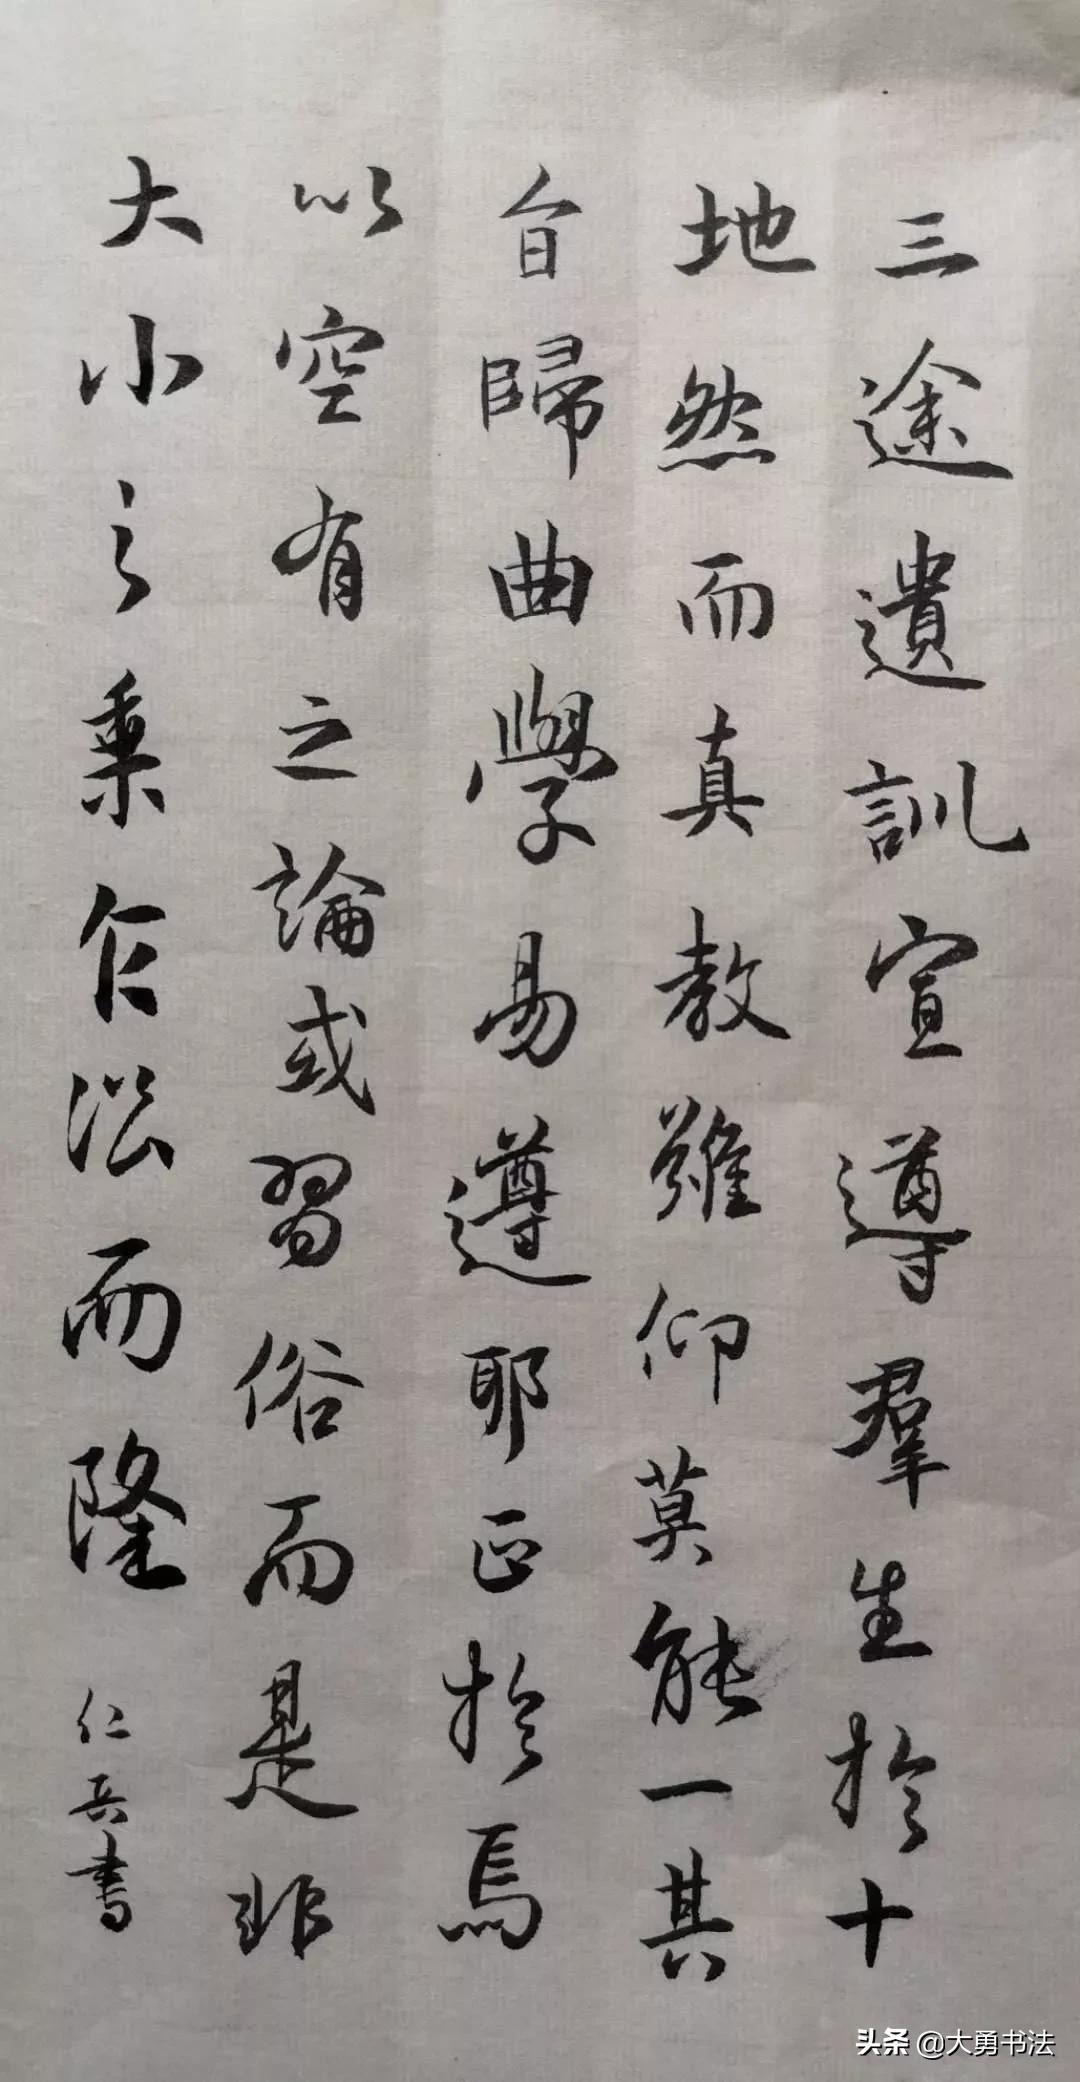 三途遺訓宣導羣生於十
地然而真教難仰莫能一其
旨歸曲學易遵耶正於焉
以空有之論或習俗而是非
大小之乘乍㳒而隆
仁兵書
头条 @大勇书法